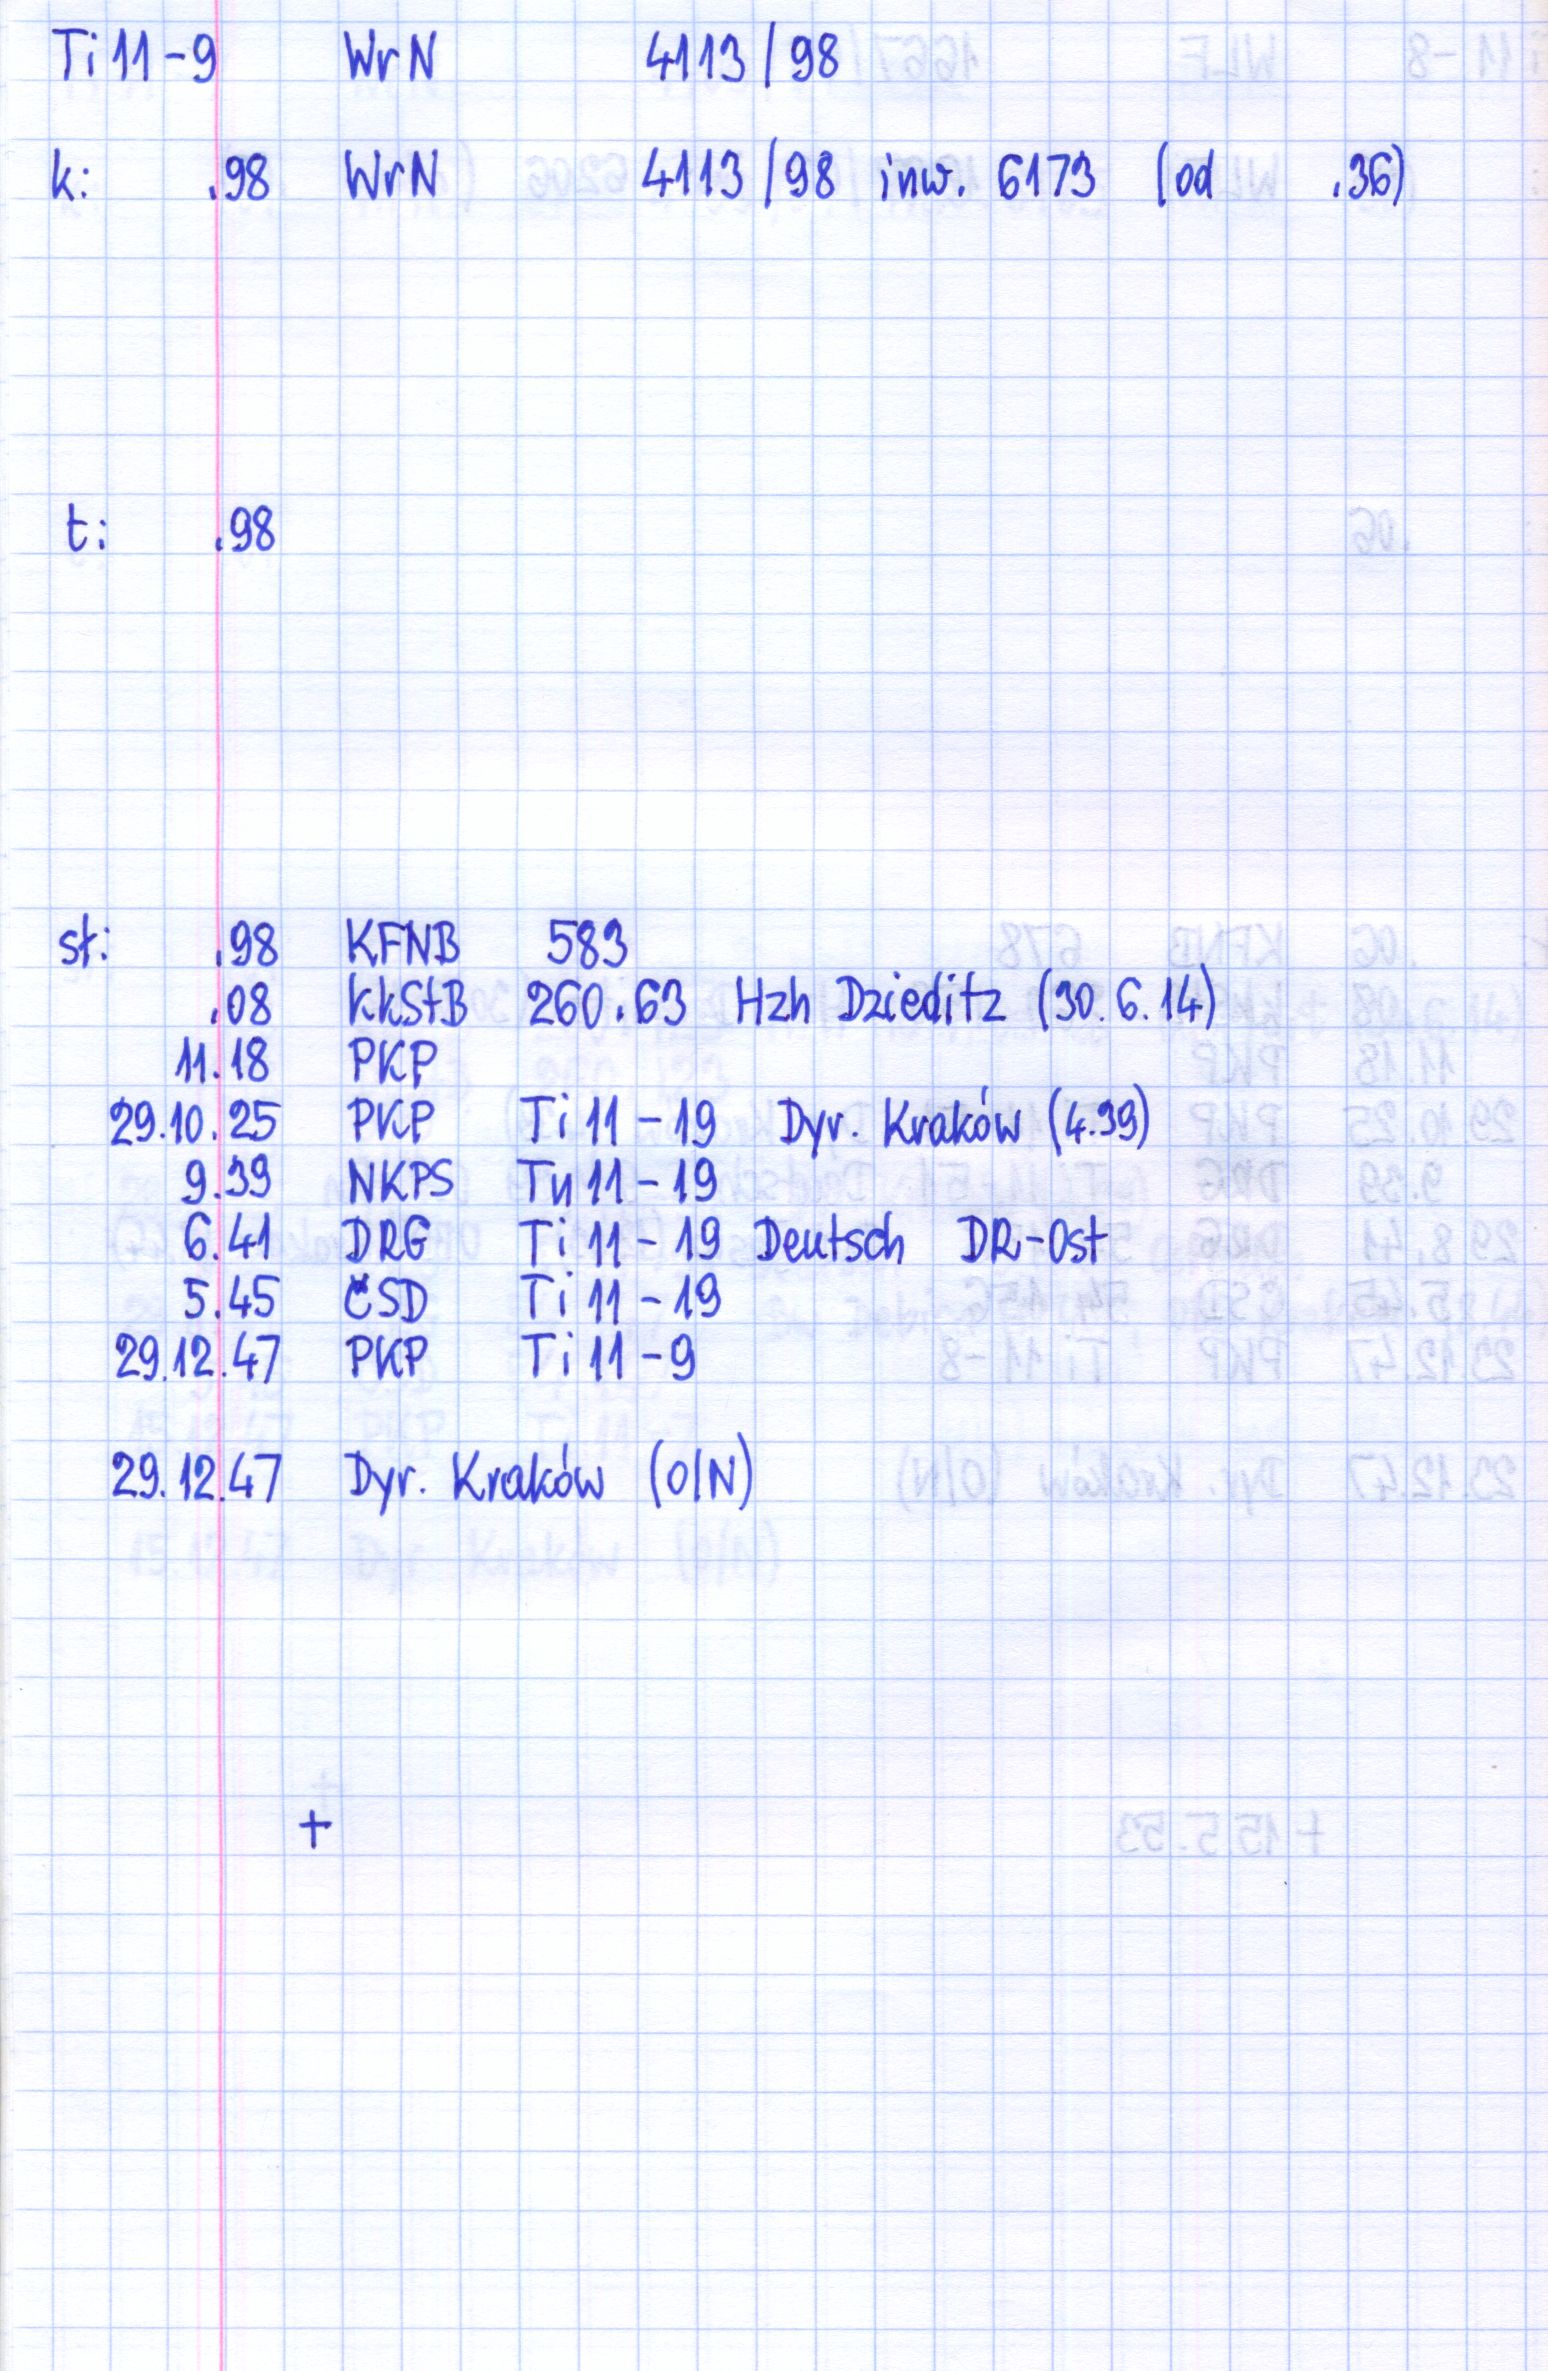 Ti 11-9 WrN 4113/98
k: .98 WrN 4113/98 inw. 6173 (od .36)
t: .98
st: .98 KFNB 583
.08 KkStB 260.63 Hzh Dzieditz (30.6.14)
11.18 PKP
29.10.25 PKP Ti 11-19 Dyr. Kraków (4.39)
9.39 NKPS Tu 11-19
6.41 DRG Ti 11-19 Deutsch DR-Ost
5.45 ČSD Ti 11-19
29.12.47 PKP Ti 11-9
29.12.47 Dyr. Kraków (O/N)
+